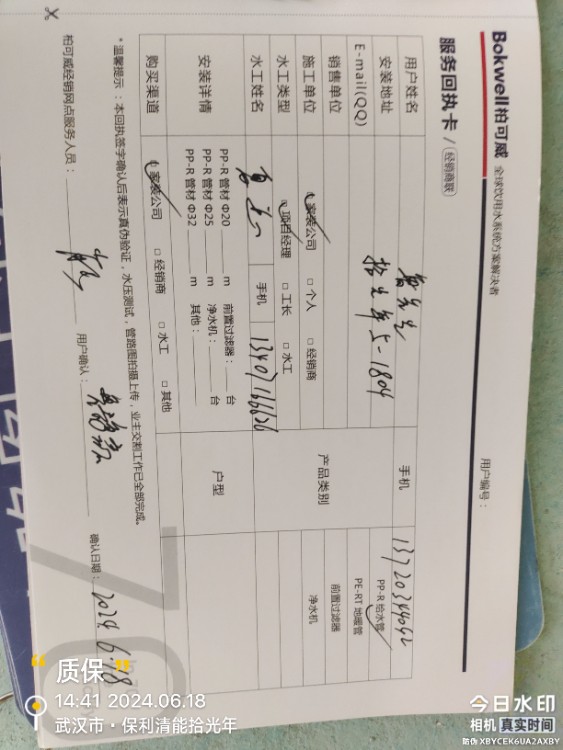 Bokwell柏可威 全球饮用水系统方案解决者
服务回执卡 / 经销商联
用户编号：
用户姓名
手机 13720344042
安装地址 拾光年5-1804
E-mail(QQ)
销售单位
产品类别 PP-R 给水管
PE-RT 地暖管
前置过滤器
净水机
施工单位 家装公司 □ 个人 □ 经销商
水工类型 项目经理 □ 工长 □ 水工
水工姓名 手机 13407166626
安装详情 PP-R 管材 Φ20 m 前置过滤器： 台
PP-R 管材 Φ25 m 净水机： 台
PP-R 管材 Φ32 m 其他：
户型
购买渠道 家装公司 □ 经销商 □ 水工 □ 其他
* 温馨提示：本回执签字确认后表示真伪验证，水压测试，管路图拍摄上传，业主交割工作已全部完成。
柏可威经销网点服务人员： 用户确认： 确认日期： 2024 6.18
质保
14:41 2024.06.18
武汉市·保利清能拾光年
今日水印
相机 真实时间
防伪 XBYCEK6UA2AXBY